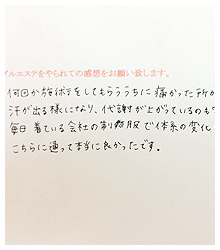 ブルエステをやられての感想をお願い致します。
何回か施術をしてもらううちに痛かった所が
汗が出る様になり、代謝が上がっているのも
毎日着ている会社の制服で体系の変化
こちらに通って本当に良かったです。